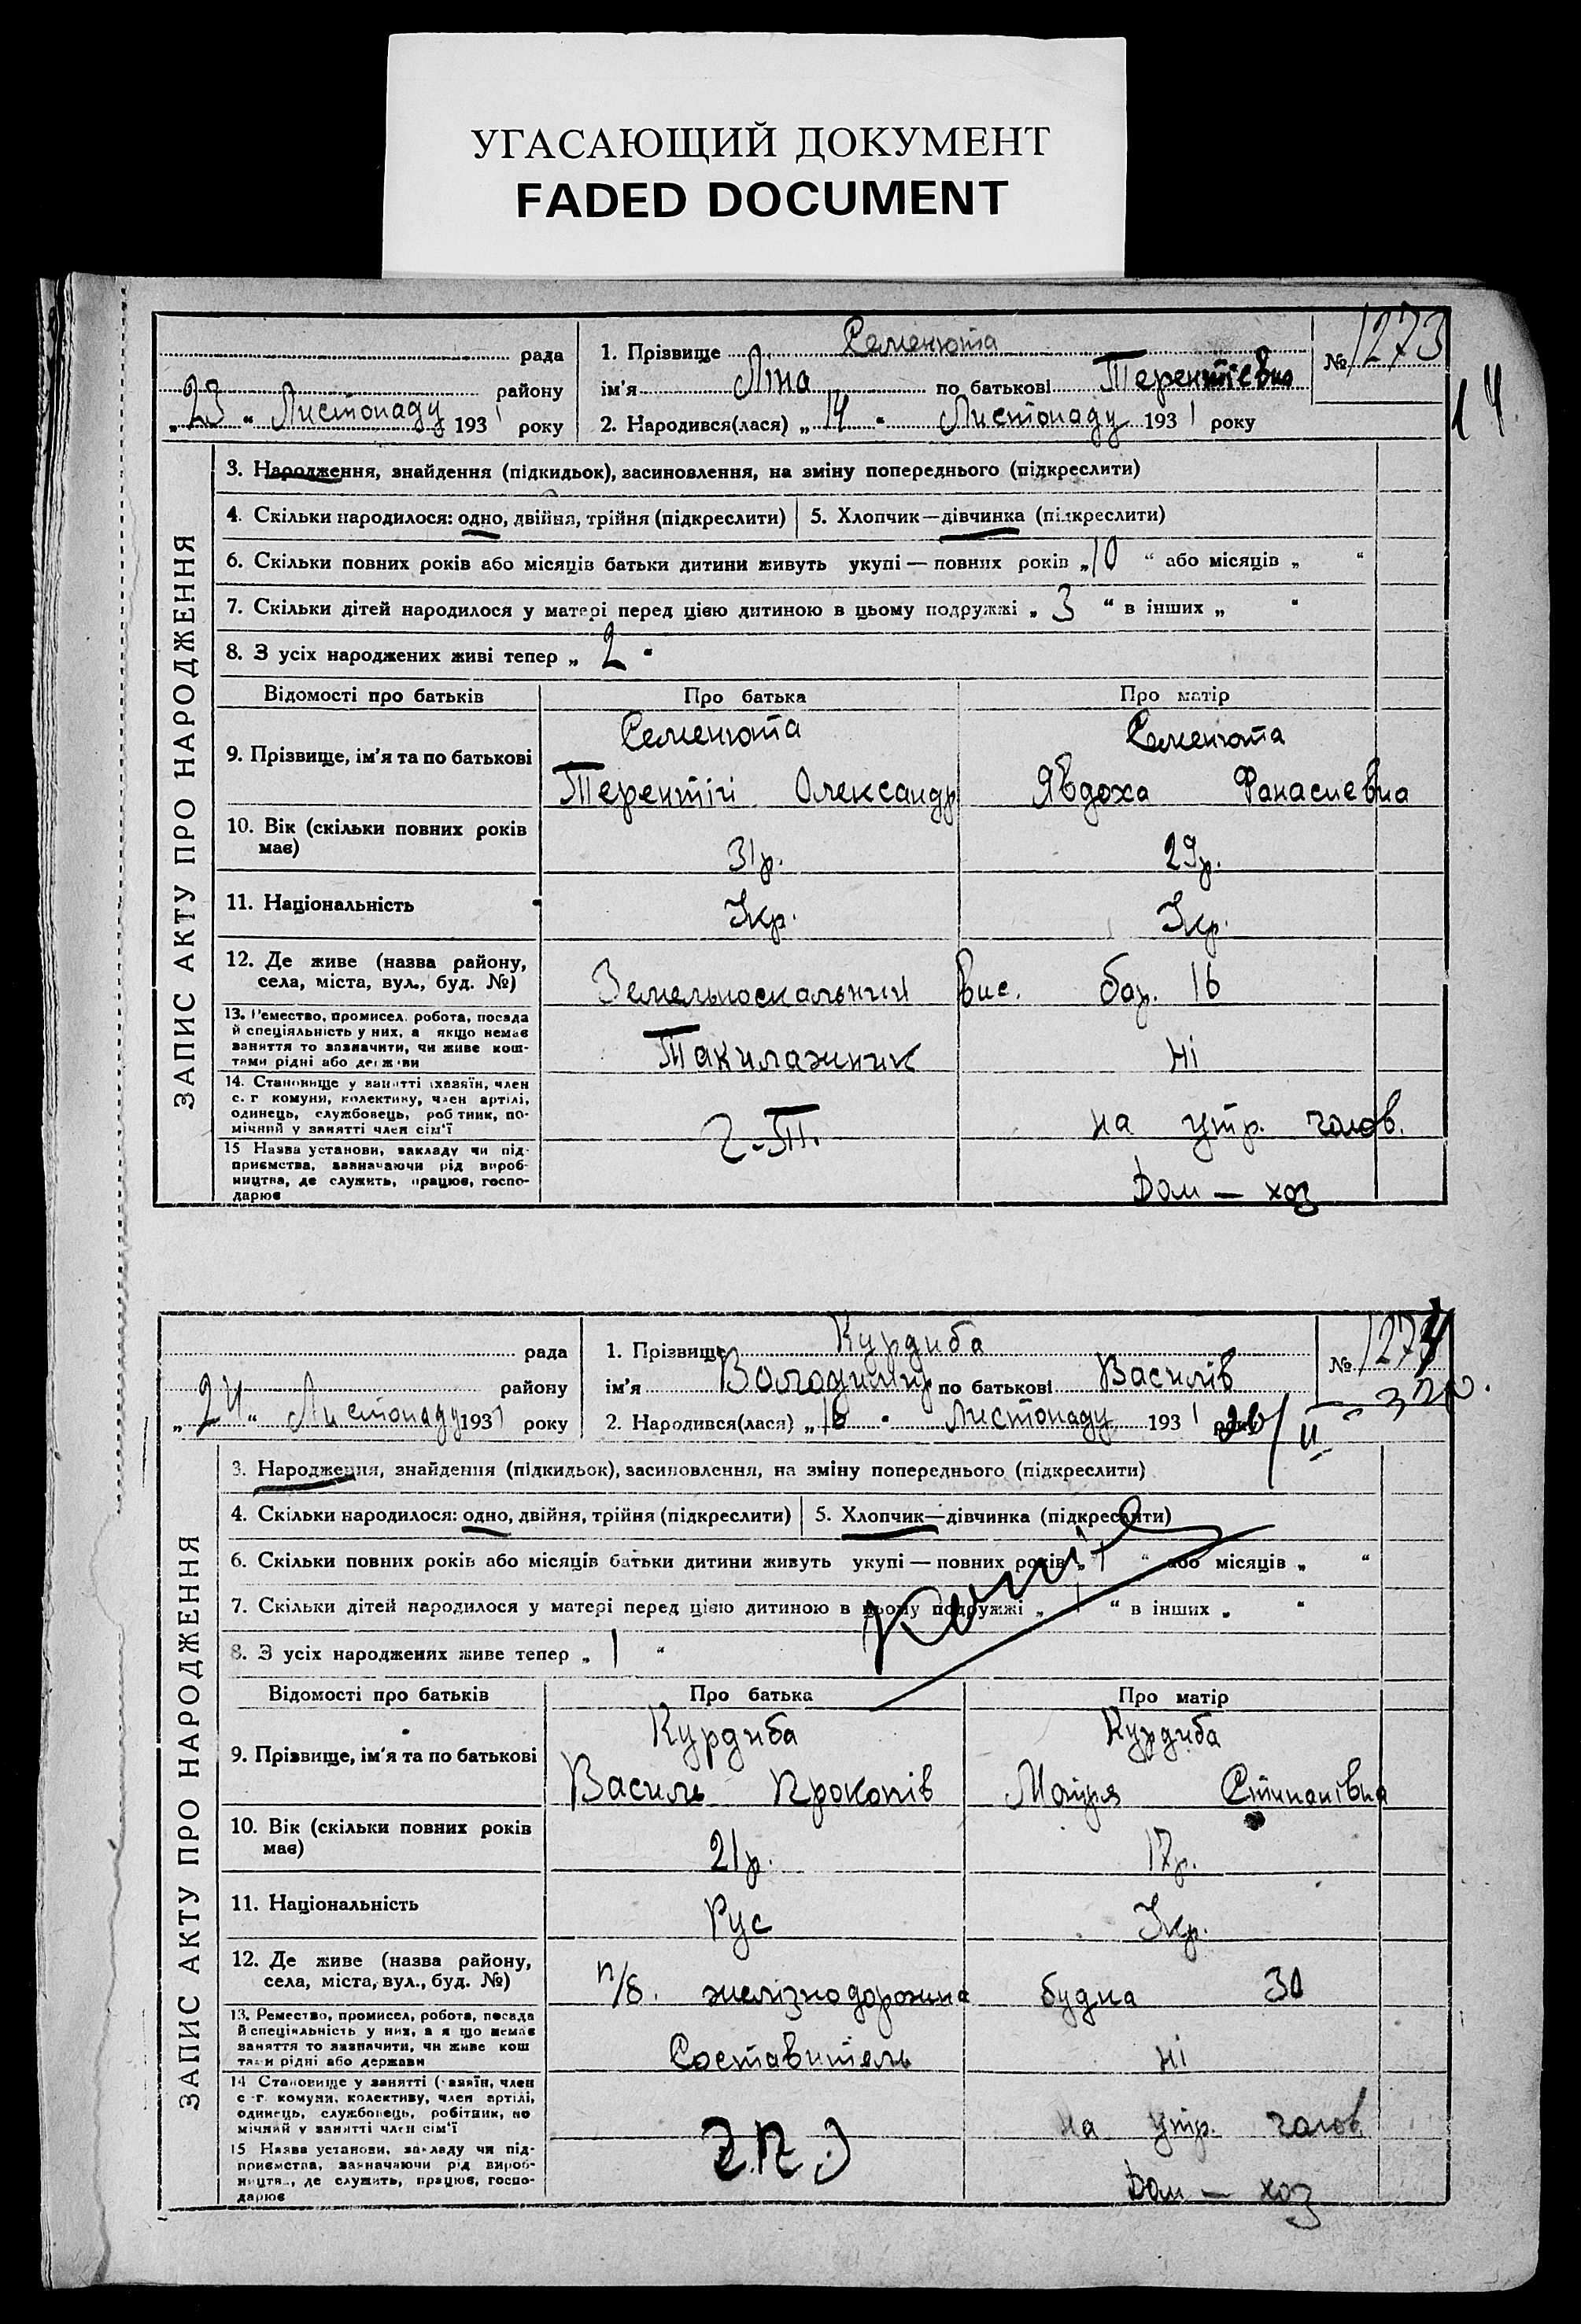 УГАСАЮЩИЙ ДОКУМЕНТ
FADED DOCUMENT
рада
району
„23“ Листопаду 1931 року
1. Прізвище Семенюта
ім'я Ліна по батькові Терентієвна
2. Народився(лася) „14“ Листопаду 1931 року
№ 1273
14.
ЗАПИС АКТУ ПРО НАРОДЖЕННЯ
3. Народження, знайдення (підкидьок), засиновлення, на зміну попереднього (підкреслити)
4. Скільки народилося: одно, двійня, трійня (підкреслити) 5. Хлопчик—дівчинка (підкреслити)
6. Скільки повних років або місяців батьки дитини живуть укупі — повних років „10“ або місяців „ “
7. Скільки дітей народилося у матері перед цією дитиною в цьому подружжі „3“ в інших „ “
8. З усіх народжених живі тепер „2“
Відомості про батьків Про батька Про матір
9. Прізвище, ім'я та по батькові
Семенюта Семенюта
Терентій Олександр Явдоха Фанасиевна
10. Вік (скільки повних років має) 31р. 29р.
11. Національність Укр. Укр.
12. Де живе (назва району, села, міста, вул., буд. №)
вис. бар. 16
13. Ремество, промисел, робота, посада й спеціяльність у них, а якщо немає заняття то зазначити, чи живе коштами рідні або держави
Такилажник Ні
14. Становище у занятті (хазяїн, член с. г. комуни, колективу, член артілі, одинець, службовець, робтник, помічний у занятті член сім'ї
на утр. чолов.
15 Назва установи, закладу чи підприємства, зазначаючи рід виробництва, де служить, працює, господарює
Дом — хоз
рада
району
„24“ Листопаду 1931 року
1. Прізвище Курдиба
ім'я Володимир по батькові Василів
2. Народився(лася) „16“ Листопаду 1931
№ 1274
ЗАПИС АКТУ ПРО НАРОДЖЕННЯ
3. Народження, знайдення (підкидьок), засиновлення, на зміну попереднього (підкреслити)
4. Скільки народилося: одно, двійня, трійня (підкреслити) 5. Хлопчик—дівчинка (підкреслити)
6. Скільки повних років або місяців батьки дитини живуть укупі — повних років „1“ або місяців „ “
7. Скільки дітей народилося у матері перед цією дитиною в цьому подружжі „1“ в інших „ “
8. З усіх народжених живе тепер „1“
Відомості про батьків Про батька Про матір
9. Прізвище, ім'я та по батькові
Курдиба Курдиба
Василь Прокопів Степанівна
10. Вік (скільки повних років має) 21р. 17р.
11. Національність Рус Укр.
12. Де живе (назва району, села, міста, вул., буд. №)
п/б. желізнодорожна будка 30
13. Ремество, промисел, робота, посада й спеціяльність у них, а я що немає заняття то зазначити, чи живе коштами рідні або держави
Составитель Ні
14 Становище у занятті (хазяїн, член с-г. комуни, колективу, член артілі, одинець, службовець, робітник, помічний у занятті член сім'ї
на утр. чолов.
15 Назва установи, закладу чи підприємства, зазначаючи рід виробництв., де служить, працює, господарює
Дом — хоз